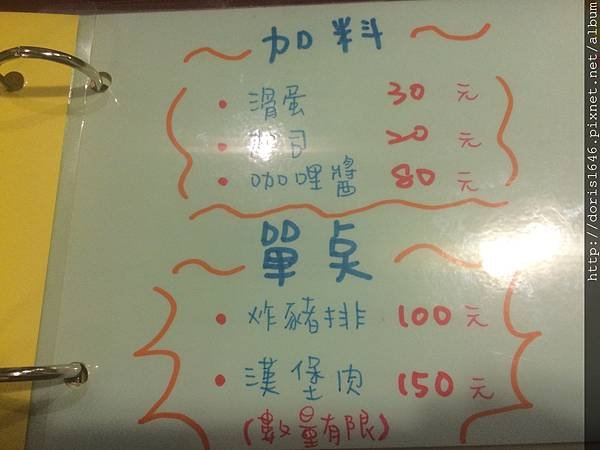 加料
滑蛋 30 元
司 20 元
咖哩醬 80 元
單点
炸豬排 100 元
漢堡肉 150 元
(數量有限)
http://doris1646.pixnet.net/album